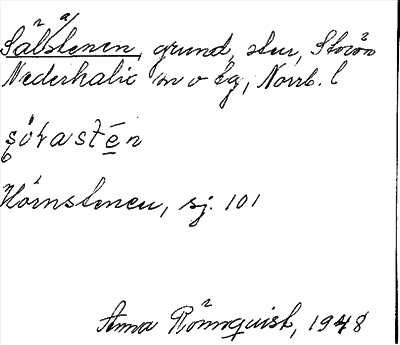 Sälstenen, grund, stur, Storön
Nederkalix sn o tg, Norrb. l
sölasten
Hörnstenen, sj. 101
Anna Rönnquist, 1948